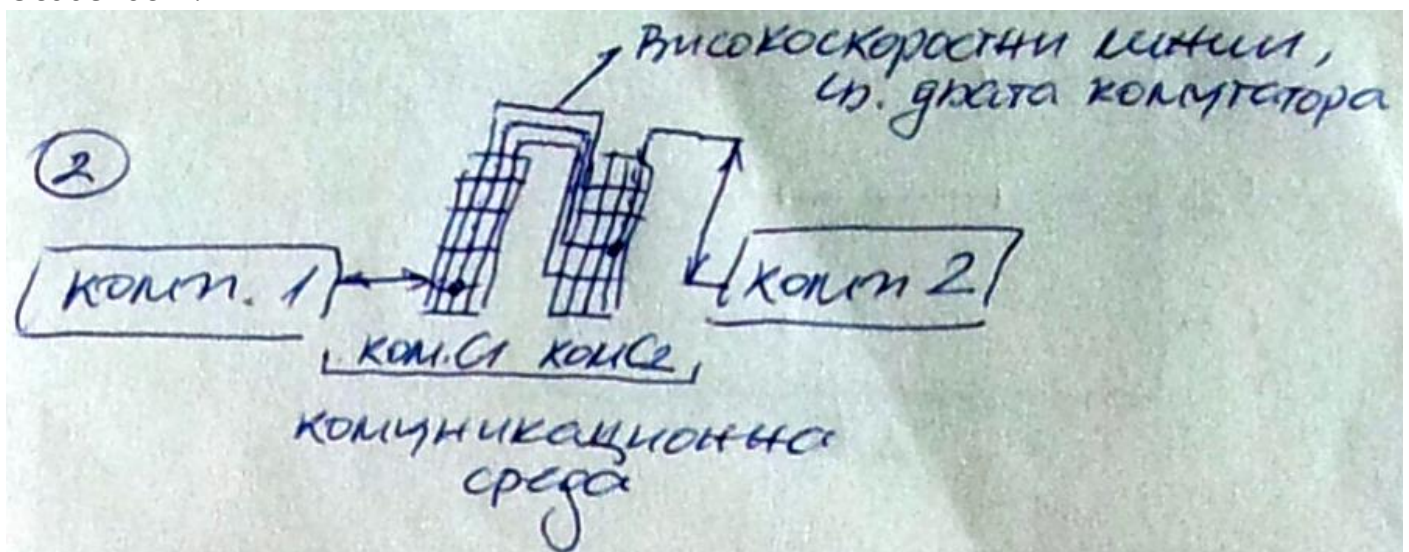 Високоскоростни линии,
св. двата комутатора
2
комп. 1
комп 2
ком.С1 комС2
комуникационна
среда